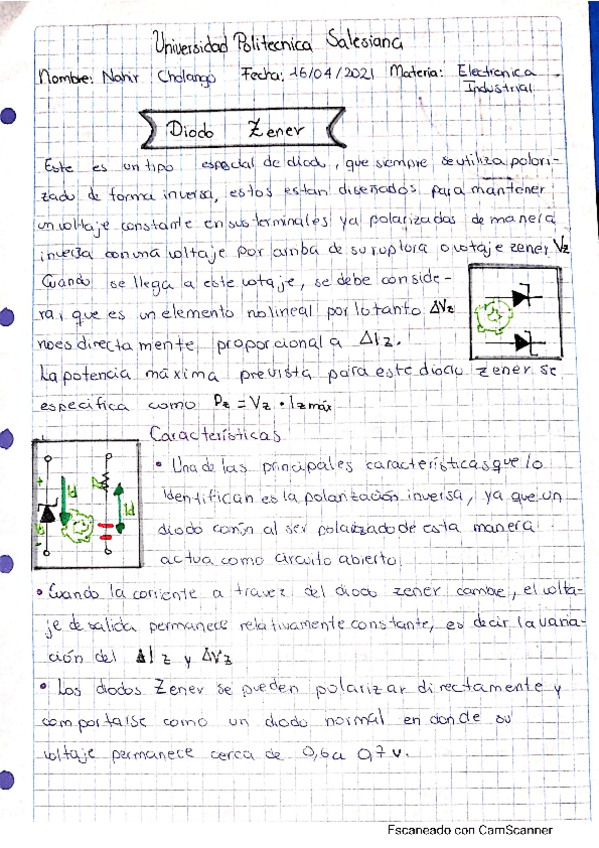 Universidad Politecnica Salesiana
Nombre: Nahir Cholango Fecha: 16/04/2021 Materia: Electronica
Industrial
Diodo Zener
Este es un tipo especial de diodo, que siempre se utiliza polari-
zado de forma inversa, estos estan diseñados para mantener
un voltaje constante en sus terminales ya polarizados de manera
inversa con una voltaje por arriba de su ruptura o votaje zener Vz
Cuando se llega a este votaje, se debe conside-
rar que es un elemento no lineal por lo tanto ΔVz
no es directamente proporcional a ΔIz.
La potencia máxima prevista para este diodo zener se
especifica como Pz = Vz · Izmáx
Características
• Una de las principales características que lo
identifican es la polarización inversa, ya que un
diodo común al ser polarizado de esta manera
actua como circuito abierto.
• Cuando la corriente a travez del diodo zener cambie, el volta-
je de salida permanece relativamente constante, es decir la varia-
ción del ΔIz y ΔVz
• Los diodos Zener se pueden polarizar directamente y
comportarse como un diodo normal en donde su
voltaje permanece cerca de 0,6 a 0,7 v.
Escaneado con CamScanner